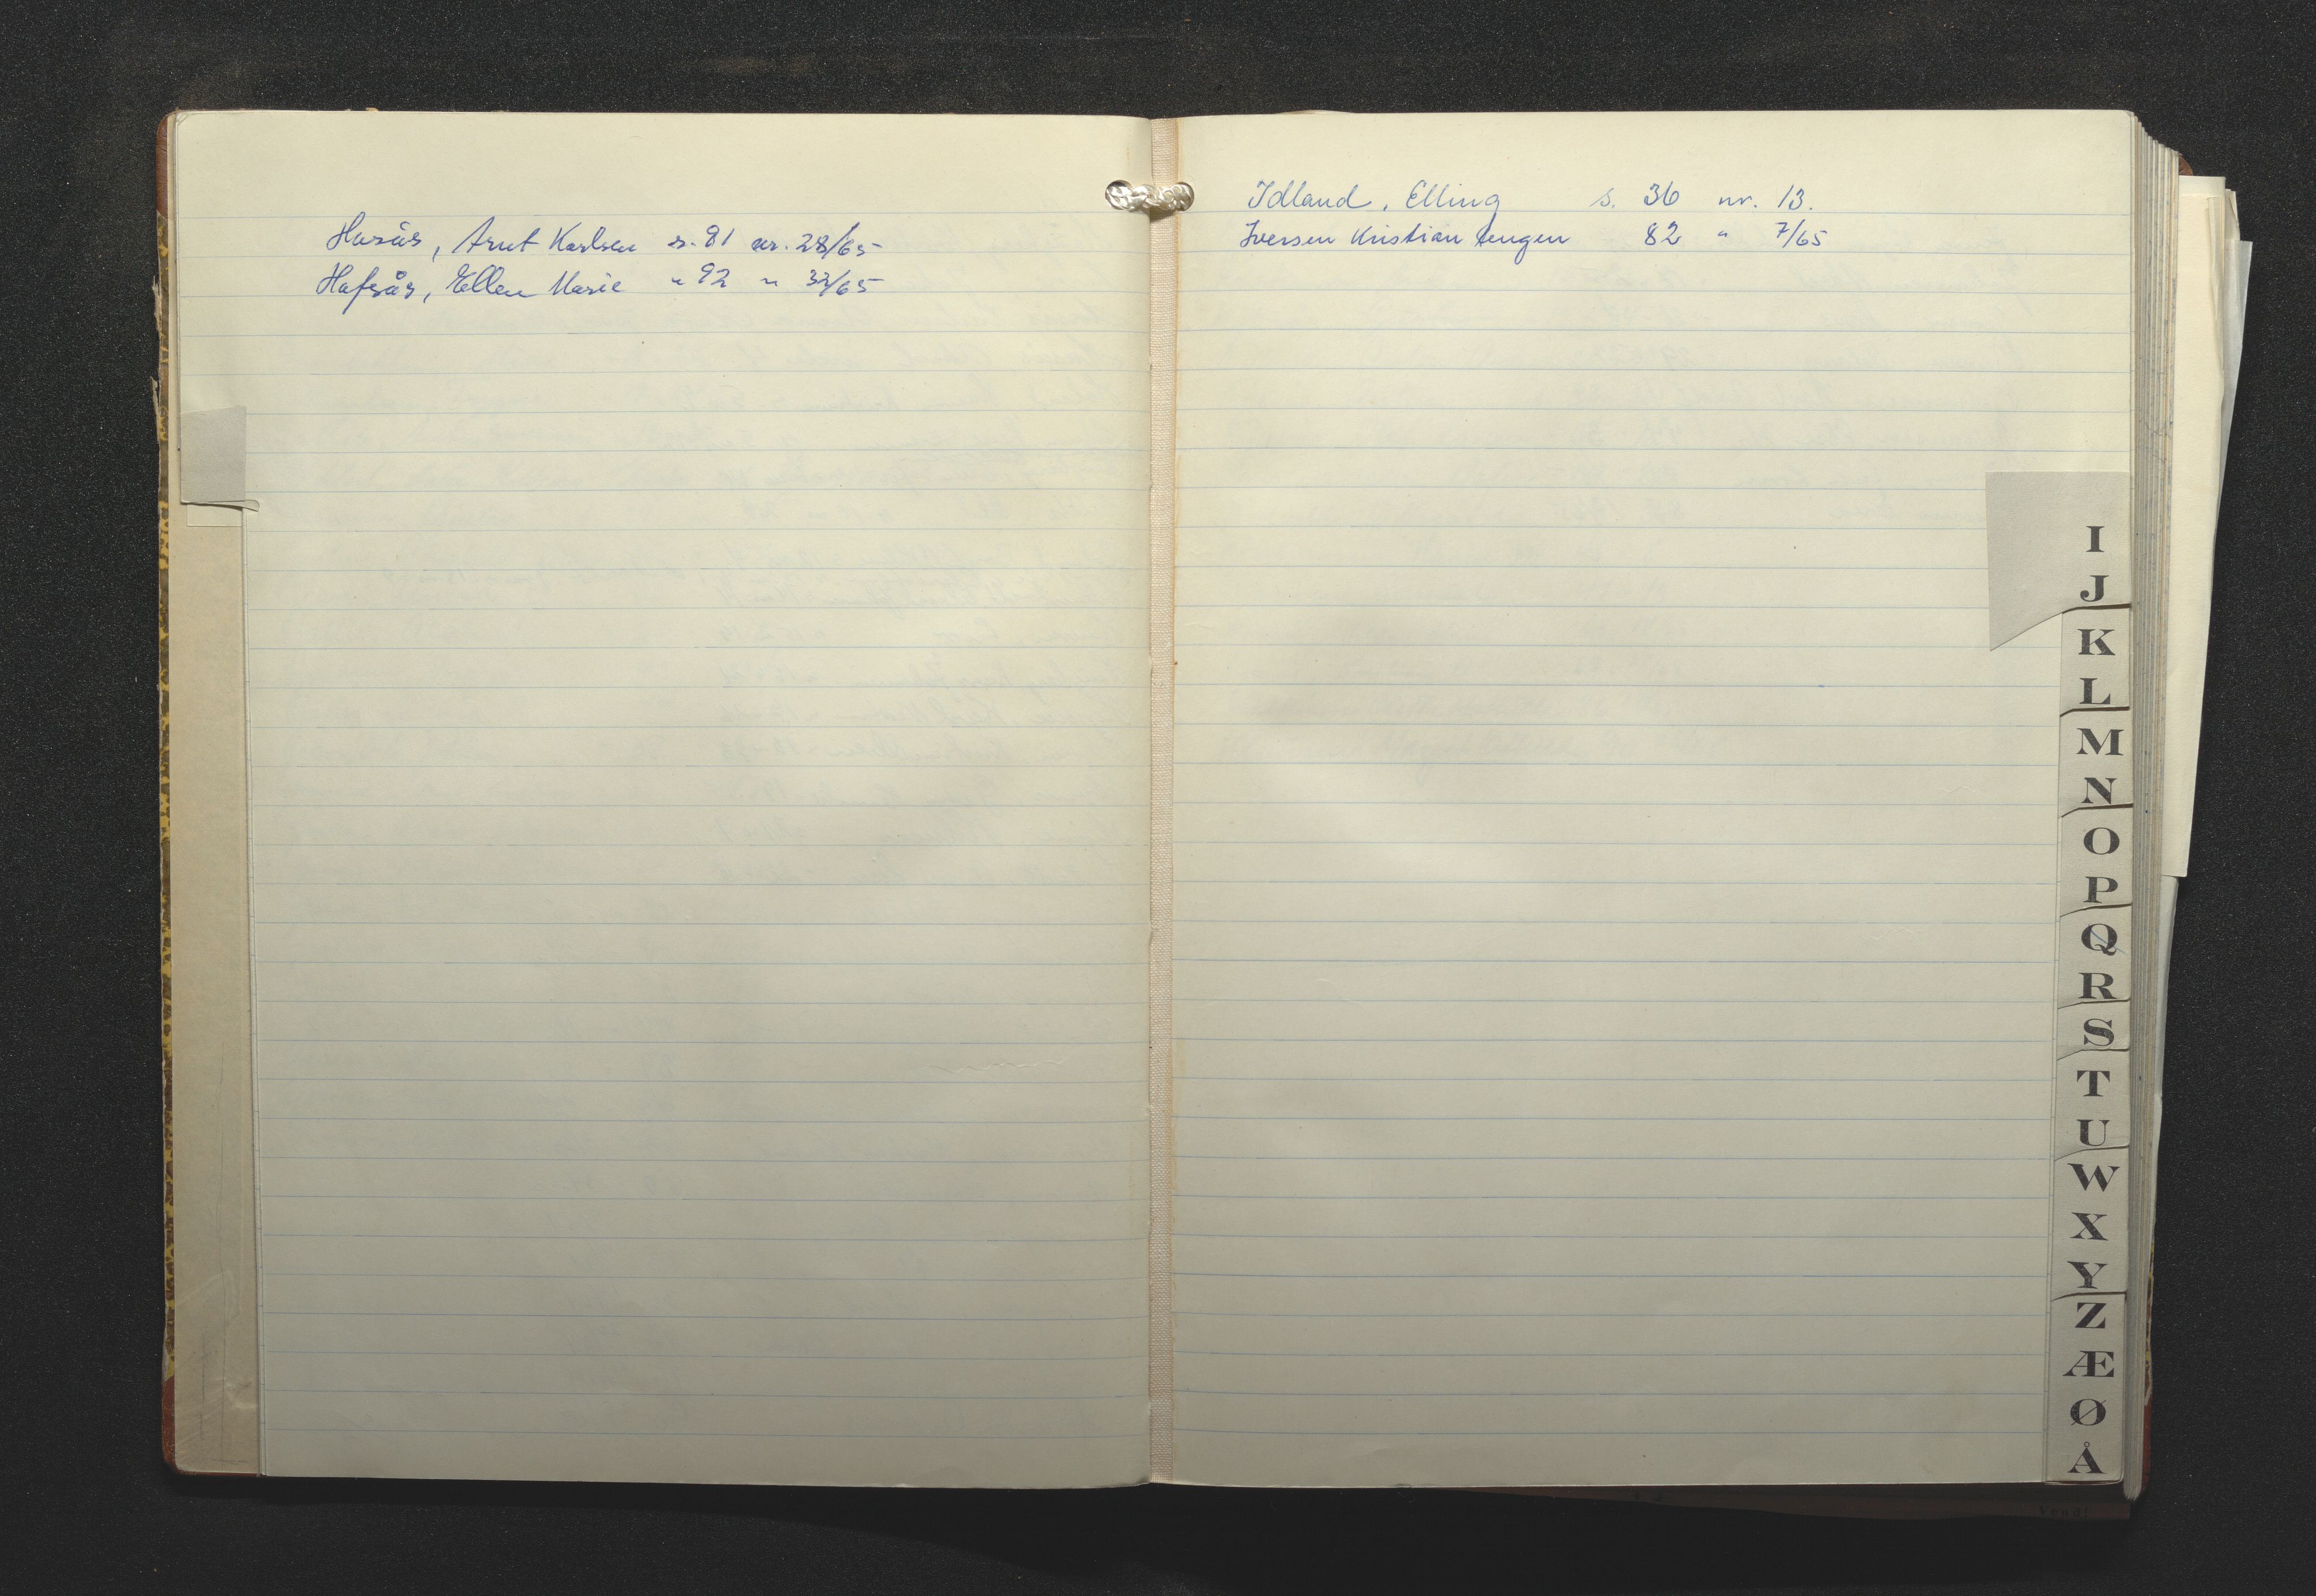 Husås, Arnt Karlsen s. 91 nr. 28/65
Hafsås, Ellen Marie " 92 " 33/65
Idland, Elling s. 36 nr. 13.
Iversen Kristian Tengen 82 " 7/65
I
J
K
L
M
N
O
P
Q
R
S
T
U
W
X
Y
Z
Æ
Ø
Å